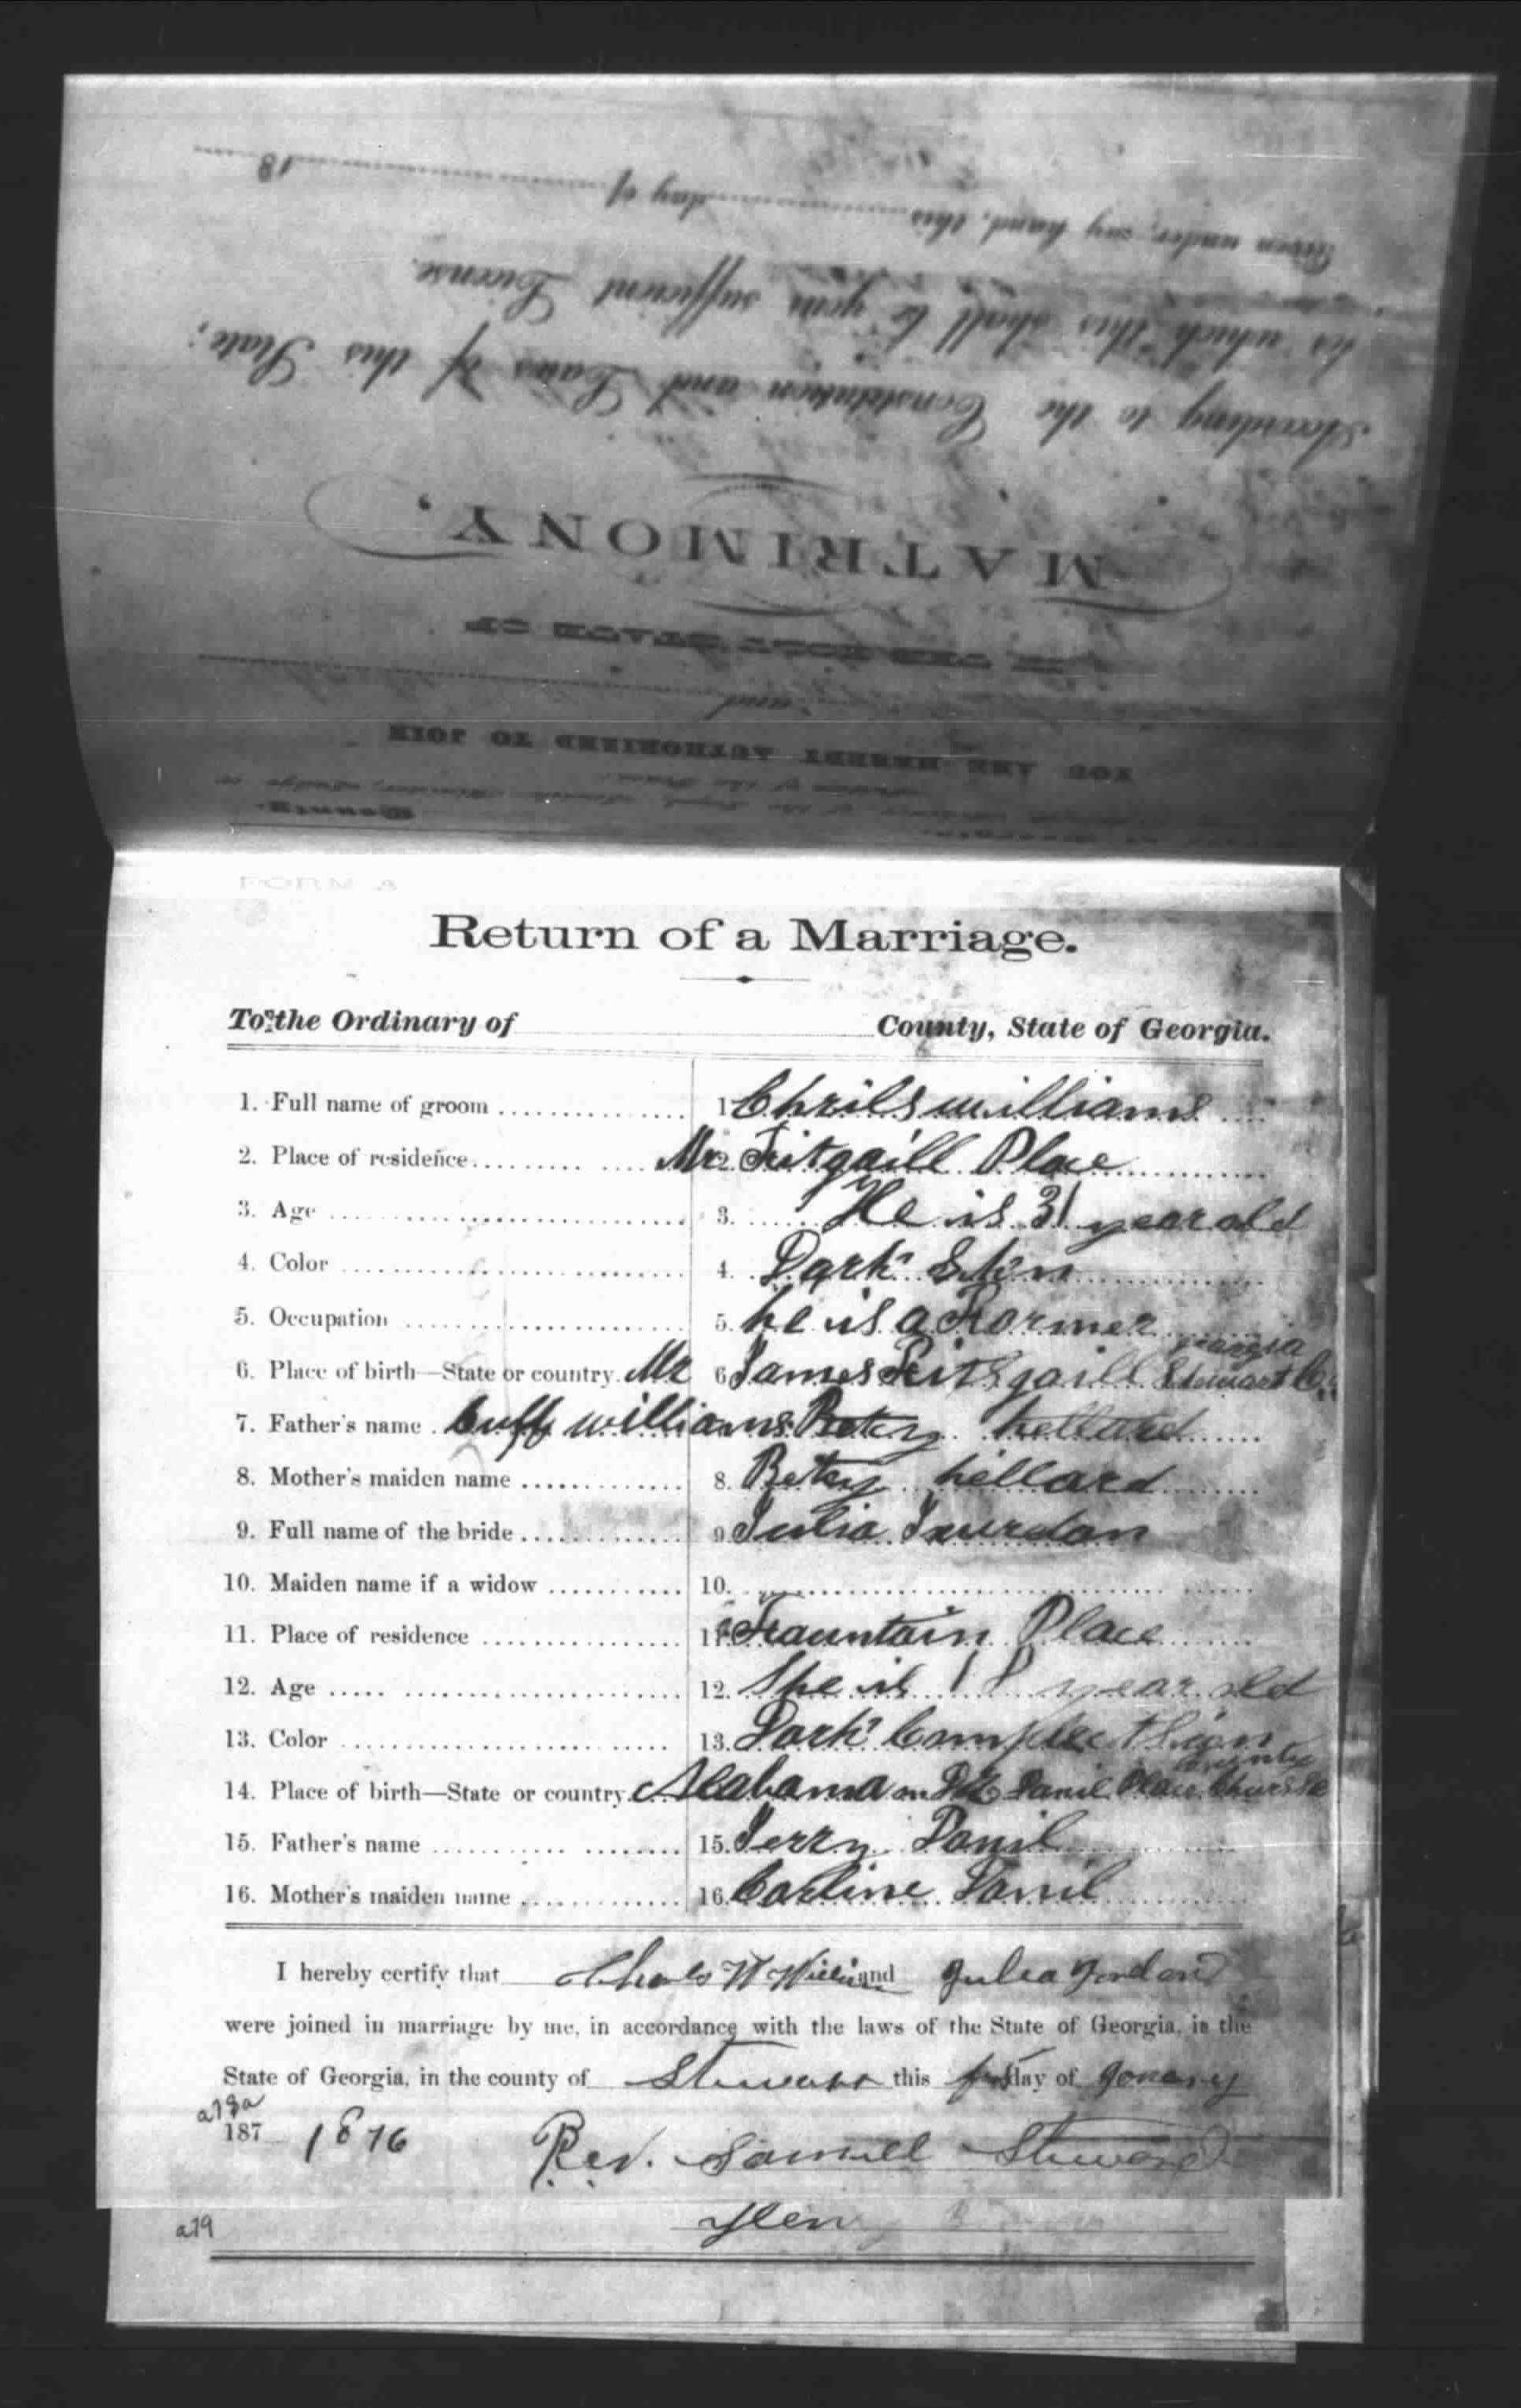 18
Given under my hand, this day of
for which this shall be your sufficient License.
According to the Constitution and Laws of this State;
MATRIMONY,
IN THE HOLY STATE OF
and
YOU ARE HEREBY AUTHORIZED TO JOIN
FORM A
Return of a Marriage.
To the Ordinary of County, State of Georgia.
1. Full name of groom 1 Chrils williams
2. Place of residence Mr 2 Fitgaill Place
3. Age 3. He is 31 year old
4. Color 4. Dark Skin
5. Occupation 5. he is a Formер
georgia
6. Place of birth—State or country. Mr 6 James Fitsgaill Stewart C.
7. Father's name Cuff williams Betsy hellard
8. Mother's maiden name 8. Betsy hellard
9. Full name of the bride 9 Julia Jourdan
10. Maiden name if a widow 10.
11. Place of residence 11. Fountain Place
12. Age 12. She is 18 year old
13. Color 13. Dark Complecthion
county
14. Place of birth—State or country. Alabama on Danil Place
15. Father's name 15. Jerry Danil
16. Mother's maiden name 16. Carline Danil
I hereby certify that Charls W Willi and Julea Jordan
were joined in marriage by me, in accordance with the laws of the State of Georgia, in the
State of Georgia, in the county of Stewart this first day of Jonary
a78a
187 1876 Rev. Samuell Steward
a79 Glen